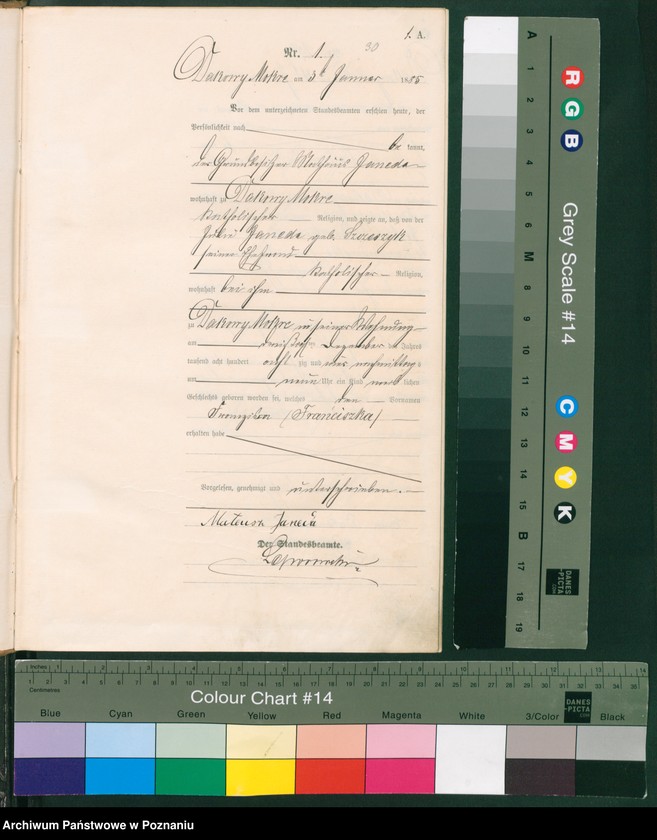 1. A.
30
Nr. 1.
Dakowy Mokre am 3t Januar 1885
Vor dem unterzeichneten Standesbeamten erschien heute, der
Persönlichkeit nach
be kannt,
der Grundbesitzer Mathäus Janeda
wohnhaft zu Dakowy Mokre
katholischer Religion, und zeigte an, daß von der
Janeda geb.
seiner Ehefrau
katholischer Religion,
wohnhaft bei ihm
zu Dakowy Mokre in seiner Wohnung
am Dezember des Jahres
tausend acht hundert acht zig und vier nachmittags
um neun Uhr ein Kind lichen
Geschlechts geboren worden sei, welches den Vornamen
(Franciszka)
erhalten habe
Vorgelesen, genehmigt und unterschrieben.
Mateusz
Der Standesbeamte.
A
1
2
3
4
5
6
M
8
9
10
11
12
13
14
15
B
17
18
19
R
G
B
Grey Scale #14
C
M
Y
K
DANES
-PICTA
.COM
Inches 1 2 3 4 5 6 7 8 9 10 11 12 13 14
1 2 3 4 5 6 7 8 9 10 11 12 13 14 15 16 17 18 19 20 21 22 23 24 25 26 27 28 29 30 31 32 33 34 35
Centimetres
Colour Chart #14
DANES
-PICTA
.COM
Blue Cyan Green Yellow Red Magenta White 3/Color Black
Archiwum Państwowe w Poznaniu